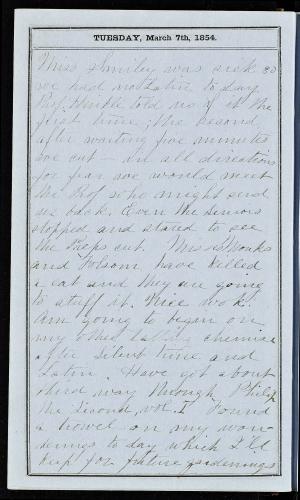 TUESDAY, March 7th, 1854.
Miss Smiley was sick so
we had no Latin to day
Prof. Hinkle told us of it the
first time; the second
after waiting five minutes
we cut – in all directions
for fear we would meet
the Prof who might send
us back. Even the Seniors
stopped and stared to see
the Preps cut. Misses
and Folsom have killed
a cat and they are going
to stuff it. Nice work!
Am going to began on
my chemise
after Silent time and
Latin. Have got about
third way through Philip
the Second, vol. I Found
a on my wan-
derings to day which I'll
keep for future